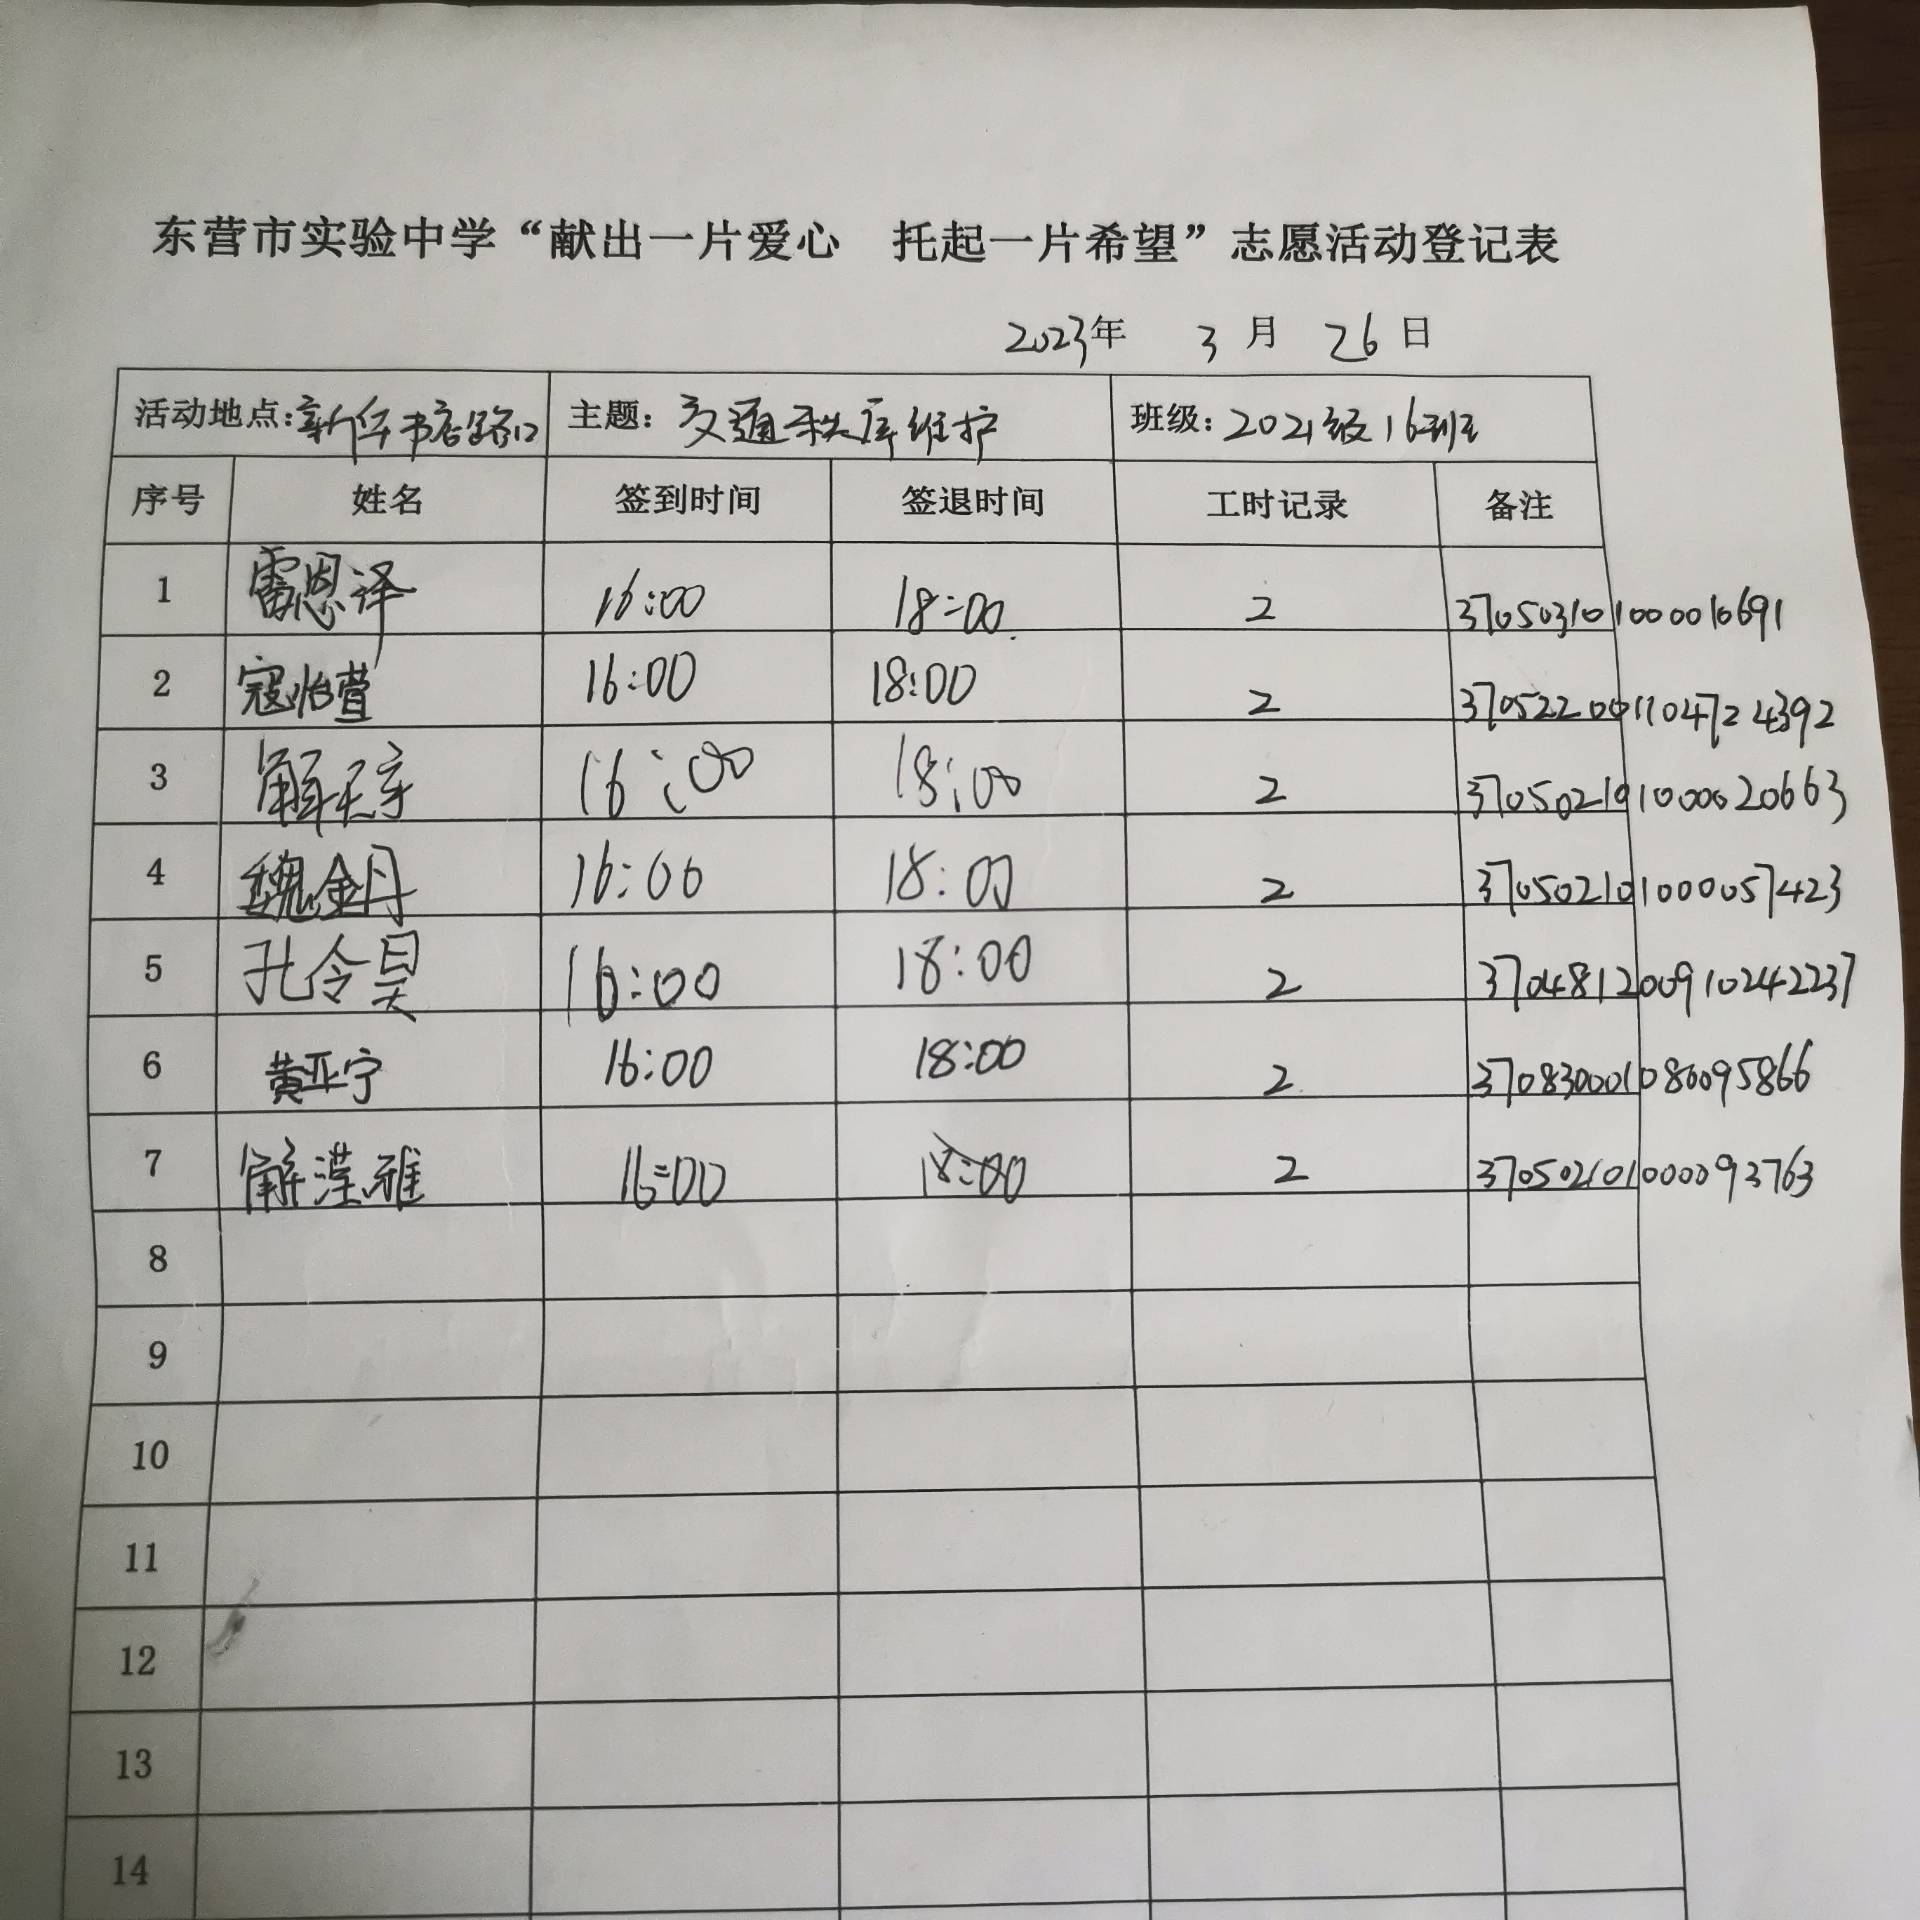 东营市实验中学“献出一片爱心 托起一片希望”志愿活动登记表
2023年 3月 26日
活动地点:新华书店路口 主题:交通秩序维护 班级:2021级16班
序号 姓名 签到时间 签退时间 工时记录 备注
1 雷恩泽 16:00 18:00 2 370503101000010691
2 寇怡萱 16:00 18:00 2 370522001104724392
3 解天宇 16:00 18:00 2 370502101000020663
4 魏金丹 16:00 18:00 2 370502101000057423
5 孔令昊 16:00 18:00 2 370481200910242237
6 黄亚宁 16:00 18:00 2 370830001080095866
7 解滢雅 16:00 18:00 2 370502101000093763
8
9
10
11
12
13
14